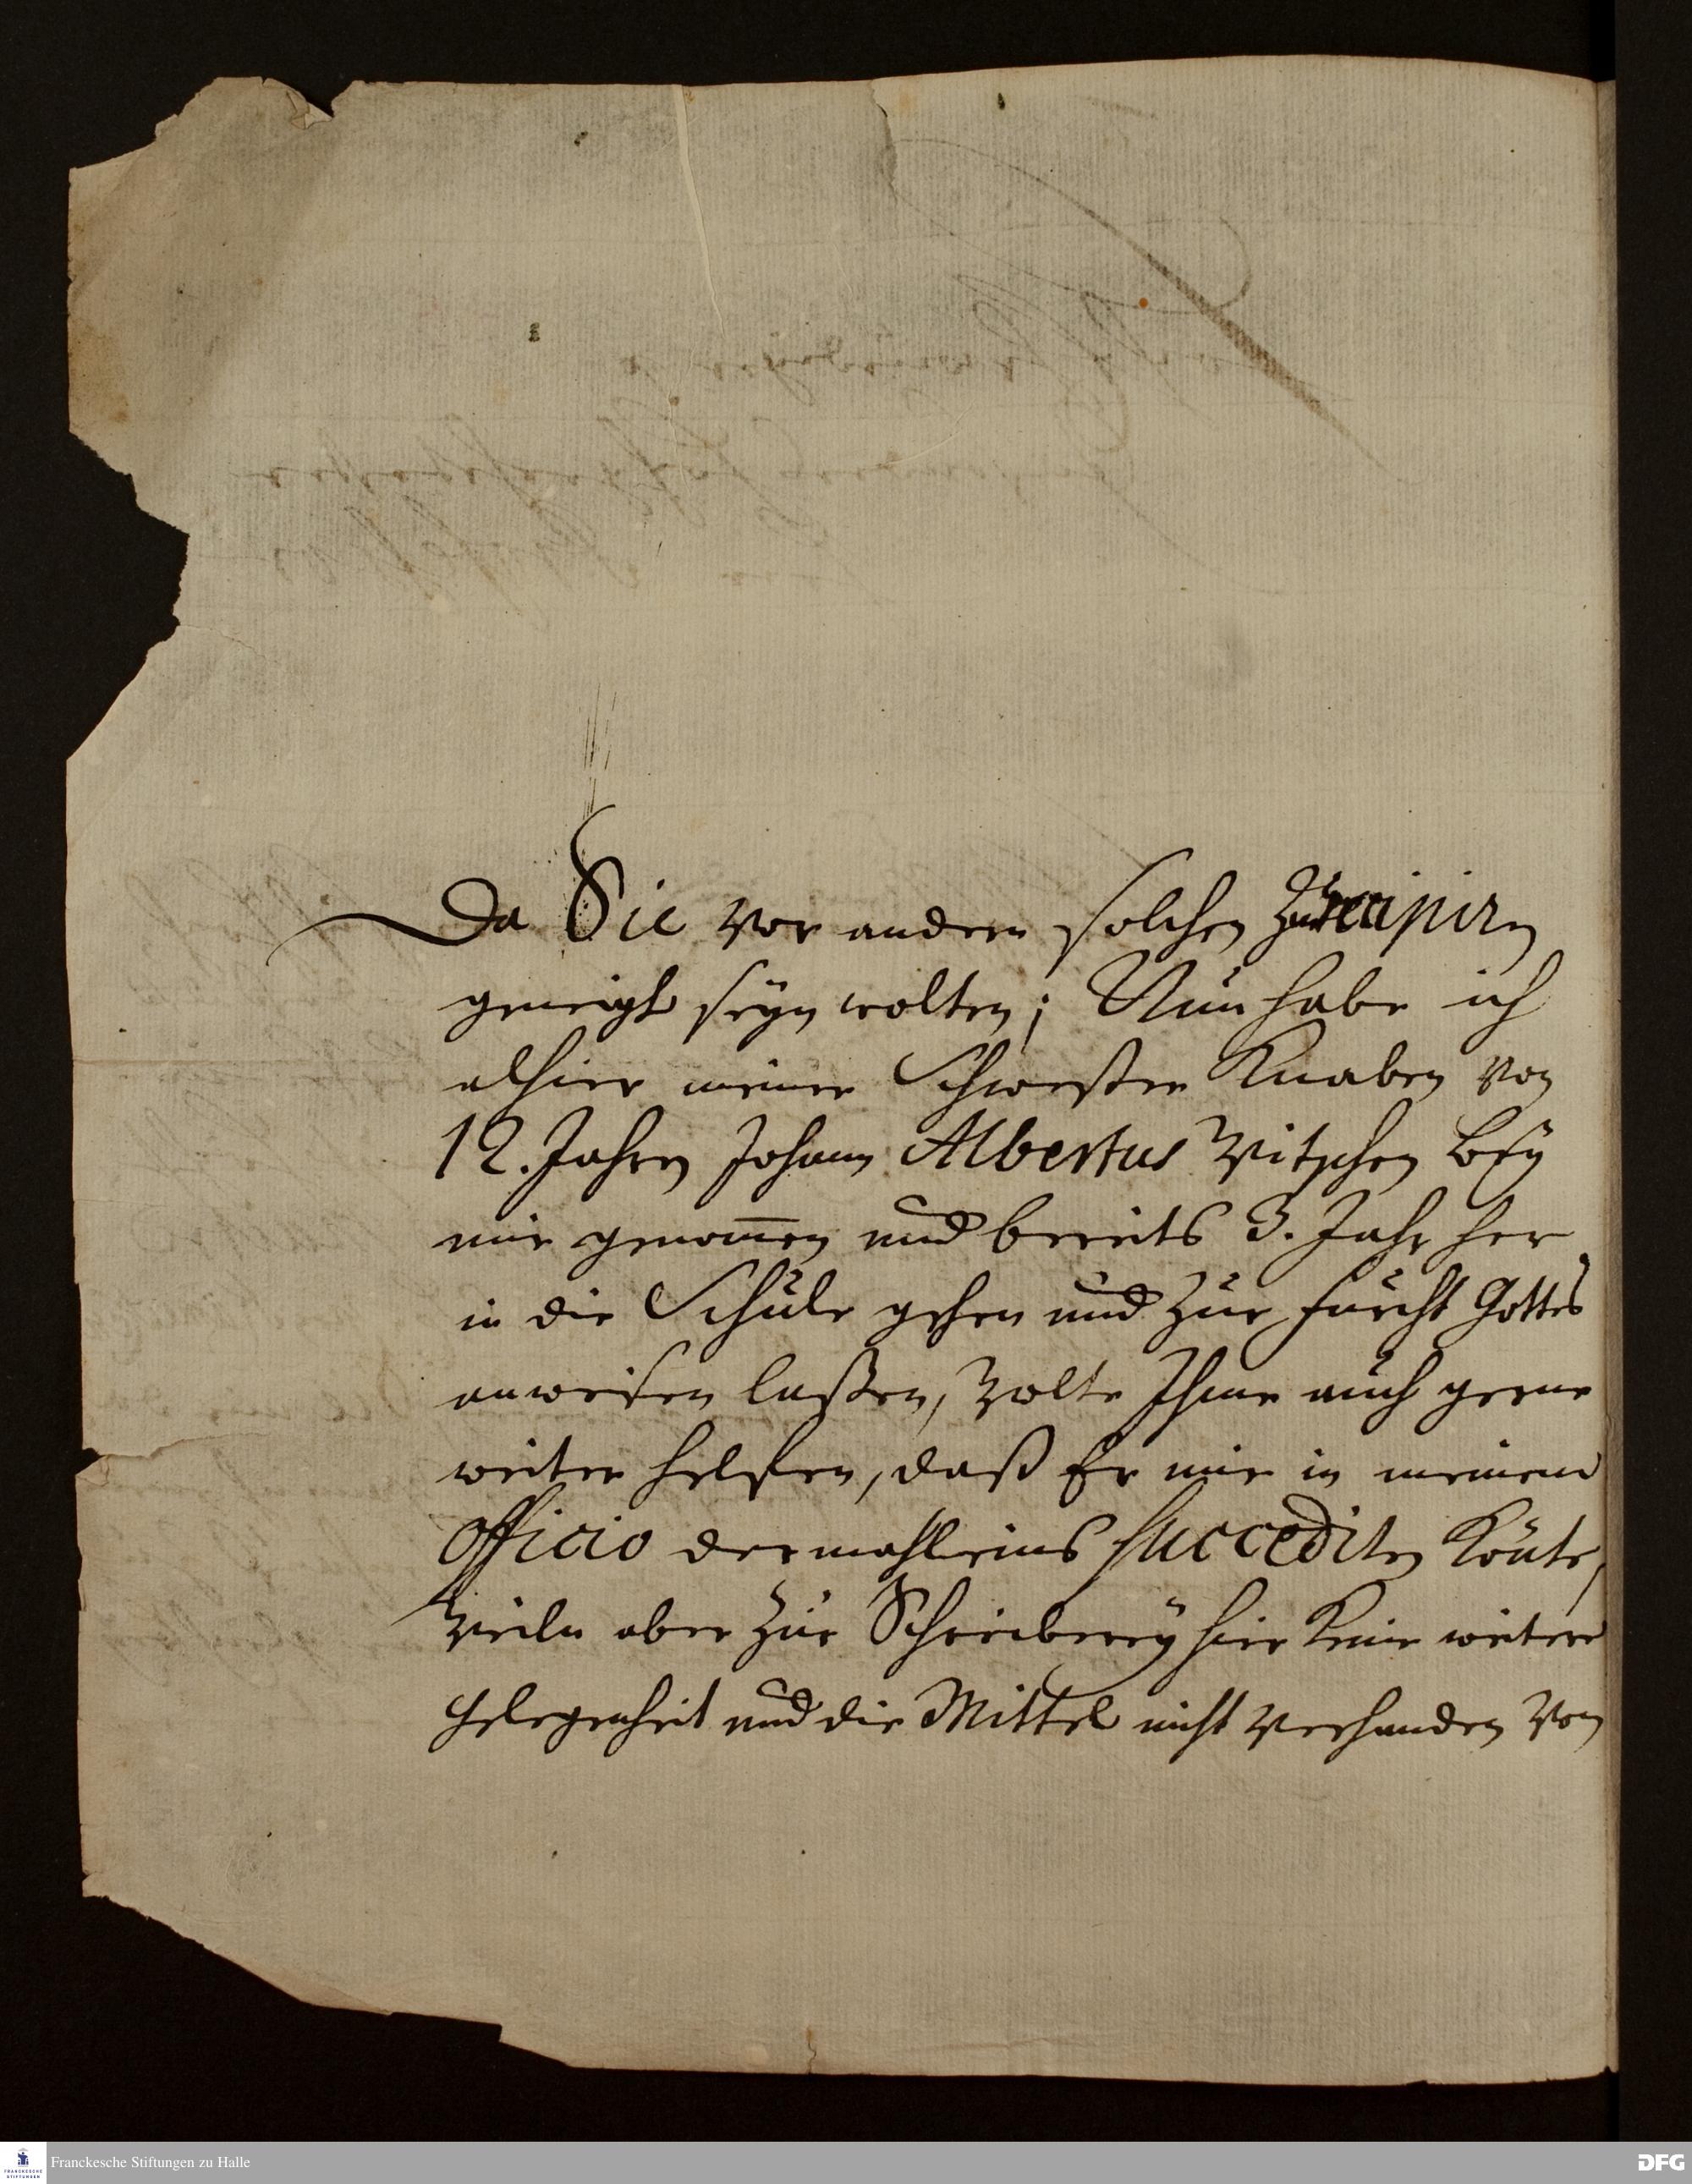 Da Sie vor andern solchen zu recipirn
geneigt seyn wolten; Nun habe ich
alhier meiner Schwester Knaben von
12. Jahren Johann Albertus Nitschen bey
mir genom̅en und bereits 3. Jahr her
in die Schule gehen und zur furcht Gottes
anweisen laßen, Wolte Ihme auch gerne
weiter helffen, daß Er mir in meinem
Officio dermahleins succediren könte,
Weiln aber zur Schreiberey hier keine weitere
Gelegenheit und die Mittel nicht verhanden von
Franckesche Stiftungen zu Halle
DFG